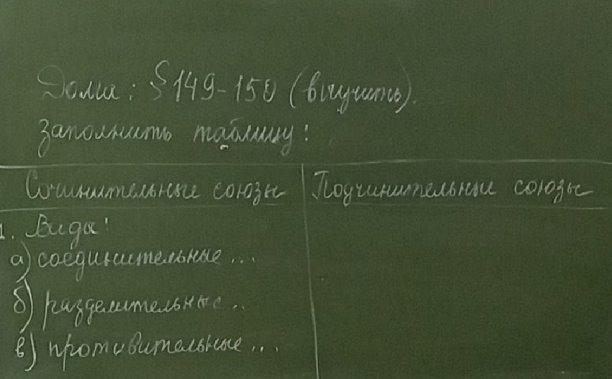 Дома: §149-150 (выучить).
Заполнить таблицу!
Сочинительные союзы Подчинительные союзы
1. Виды:
а) соединительные...
б) разделительные..
в) противительные...